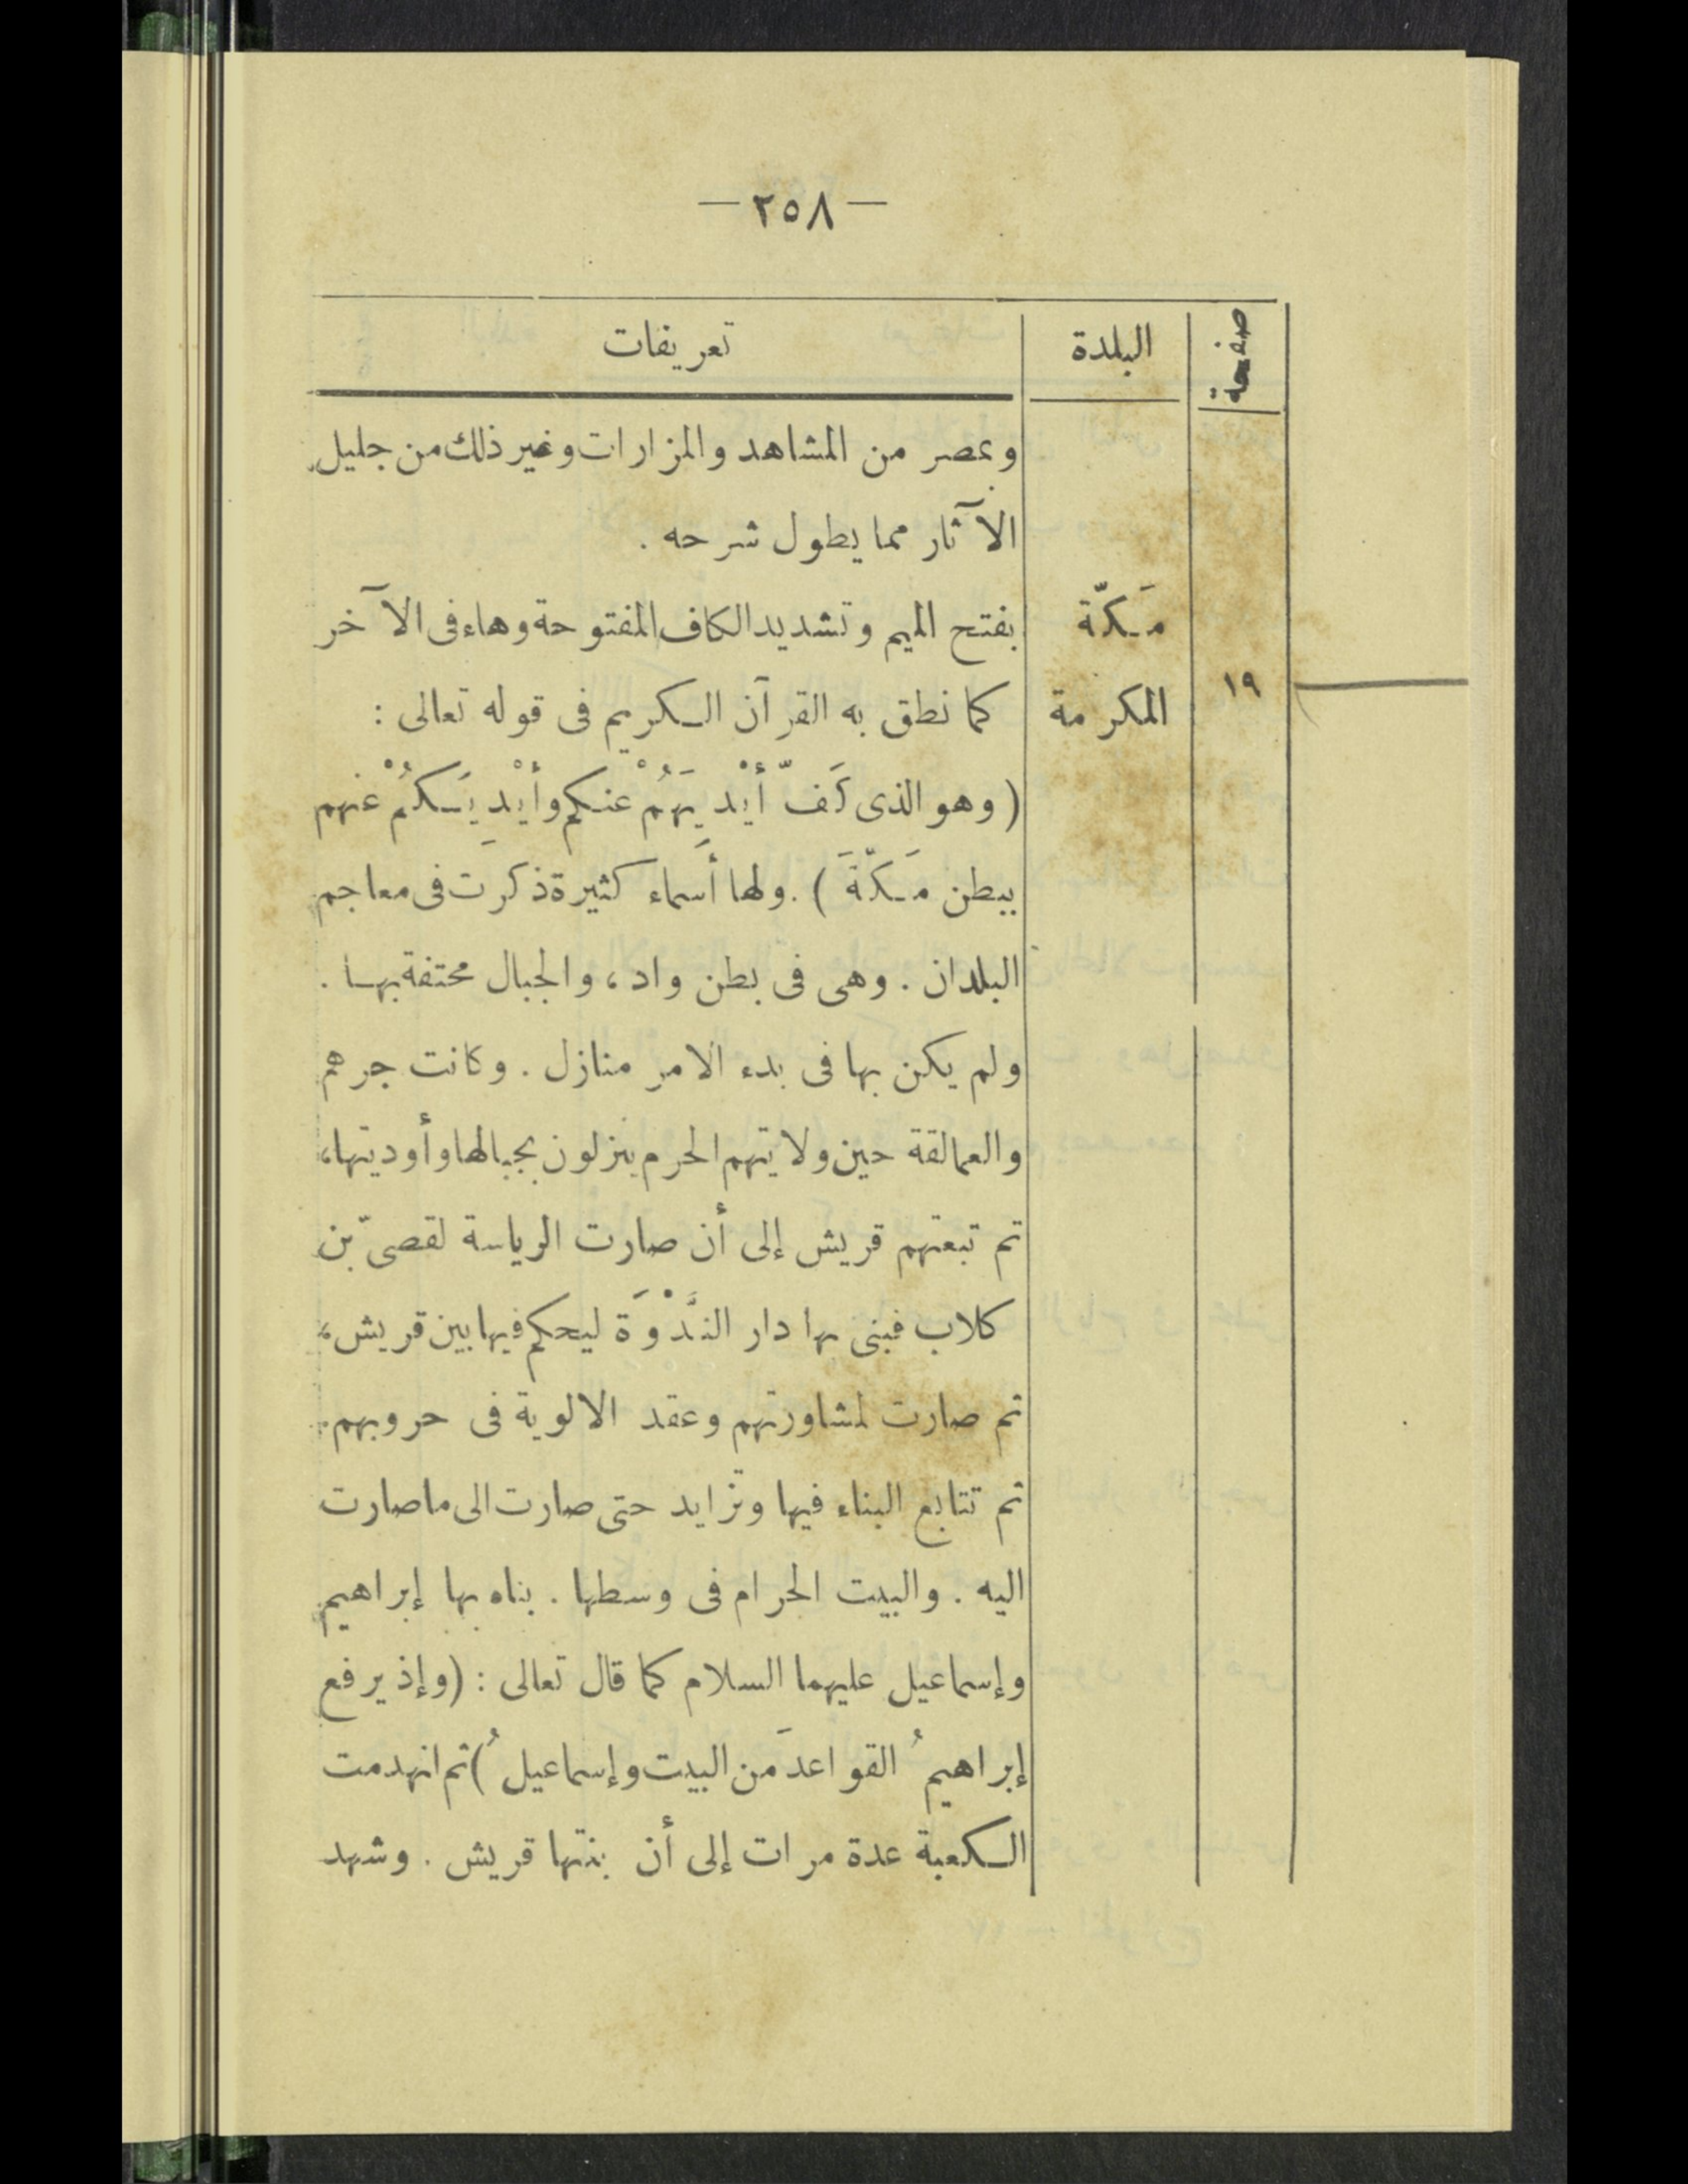 — ٢٥٨ —
صفحة البلدة تعريفات
وبمصر من المشاهد والمزارات وغير ذلك من جليل
الآثار مما يطول شرحه .
مَكّة بفتح الميم وتشديد الكاف المفتوحة وهاء فى الآخر
١٩ المكرمة كما نطق به القرآن الكريم فى قوله تعالى :
( وهو الذى كَفّ أيْدِيَهُمْ عنكم وأيْدِيَكُمْ عنهم
ببطن مَكّةَ ) . ولها أسماء كثيرة ذكرت فى معاجم
البلدان . وهى فى بطن واد ، والجبال محتفة بها .
ولم يكن بها فى بدء الامر منازل . وكانت جرهم
والعمالقة حين ولايتهم الحرم ينزلون بجبالها وأوديتها ،
ثم تبعتهم قريش إلى أن صارت الرياسة لقصىّ بن
كلاب فبنى بها دار النَّدْوَة ليحكم فيها بين قريش ،
ثم صارت لمشاورتهم وعقد الالوية فى حروبهم .
ثم تتابع البناء فيها وتزايد حتى صارت الى ماصارت
اليه . والبيت الحرام فى وسطها . بناه بها إبراهيم
وإسماعيل عليهما السلام كما قال تعالى : ( وإذ يرفع
إبراهيمُ القواعدَ من البيت وإسماعيلُ ) ثم انهدمت
الكعبة عدة مرات إلى أن بنتها قريش . وشهد